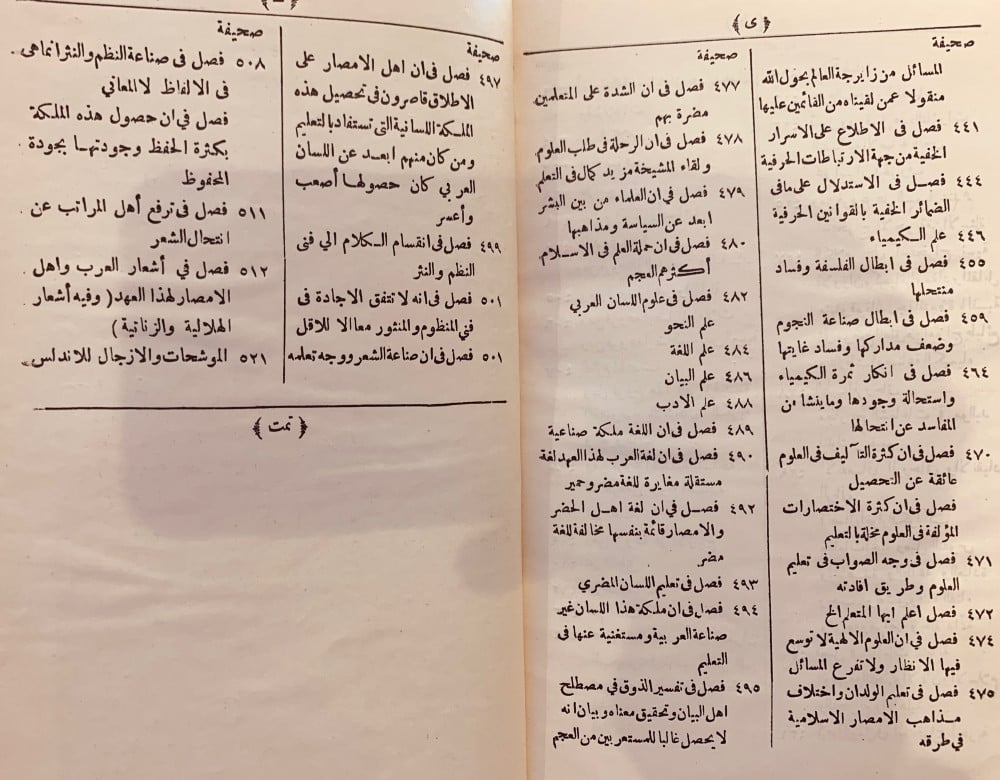 ﴿ى﴾
صحيفة
المسائل من زايرجة العالم بحول الله
منقولا عمن لقيناه من القائمين عليها
٤٤١ فصل فى الاطلاع على الاسرار
الخفية من جهة الارتباطات الحرفية
٤٤٤ فصل فى الاستدلال على مافى
الضمائر الخفية بالقوانين الحرفية
٤٤٦ علم الكيمياء
٤٥٥ فصل فى ابطال الفلسفة وفساد
منتحلها
٤٥٩ فصل فى ابطال صناعة النجوم
وضعف مداركها وفساد غايتها
٤٦٤ فصل فى انكار ثمرة الكيمياء
واستحالة وجودها وماينشا من
المفاسد عن انتحالها
٤٧٠ فصل فى ان كثرة التآليف فى العلوم
عائقة عن التحصيل
فصل فى ان كثرة الاختصارات
المؤلفة فى العلوم مخلة بالتعليم
٤٧١ فصل فى وجه الصواب فى تعليم
العلوم وطريق افادته
٤٧٢ فصل اعلم ايها المتعلم الخ
٤٧٤ فصل في ان العلوم الالهية لا توسع
فيها الانظار ولا تفرع المسائل
٤٧٥ فصل فى تعليم الولدان واختلاف
مذاهب الامصار الاسلامية
في طرقه
صحيفة
٤٧٧ فصل فى ان الشدة على المتعلمين
مضرة بهم
٤٧٨ فصل فى ان الرحلة فى طلب العلوم
ولقاء المشيخة مزيد كمال فى التعلم
٤٧٩ فصل فى ان العلماء من بين البشر
ابعد عن السياسة ومذاهبها
٤٨٠ فصل فى ان حملة العلم فى الاسلام
أكثرهم العجم
٤٨٢ فصل فى علوم اللسان العربي
علم النحو
٤٨٤ علم اللغة
٤٨٦ علم البيان
٤٨٨ علم الادب
٤٨٩ فصل فى ان اللغة ملكة صناعية
٤٩٠ فصل فى ان لغة العرب لهذا العهد لغة
مستقلة مغايرة للغة مضر وحمير
٤٩٢ فصل في ان لغة اهل الحضر
والامصار قائمة بنفسها مخالفة للغة
مضر
٤٩٣ فصل فى تعليم اللسان المضري
٤٩٤ فصل فى ان ملكة هذا اللسان غير
صناعة العربية ومستغنية عنها فى
التعليم
٤٩٥ فصل فى تفسير الذوق في مصطلح
اهل البيان وتحقيق معناه وبيان انه
لا يحصل غالبا للمستعربين من العجم
صحيفة
٤٩٧ فصل فى ان اهل الامصار على
الاطلاق قاصرون فى تحصيل هذه
الملكة اللسانية التى تستفاد بالتعليم
ومن كان منهم ابعد عن اللسان
العربي كان حصولها أصعب
وأعسر
٤٩٩ فصل فى انقسام الكلام الي فنى
النظم والنثر
٥٠١ فصل فى انه لا تتفق الاجادة فى
فني المنظوم والمنثور معا الا للاقل
٥٠١ فصل فى ان صناعة الشعر ووجه تعلمه
صحيفة
٥٠٨ فصل فى صناعة النظم والنثر انماهى
فى الالفاظ لا المعاني
فصل في ان حصول هذه الملكة
بكثرة الحفظ وجودتها بجودة
المحفوظ
٥١١ فصل فى ترفع أهل المراتب عن
انتحال الشعر
٥١٢ فصل في أشعار العرب واهل
الامصار لهذا العهد (وفيه أشعار
الهلالية والزناتية)
٥٢١ الموشحات والازجال للاندلس
﴿تمت﴾